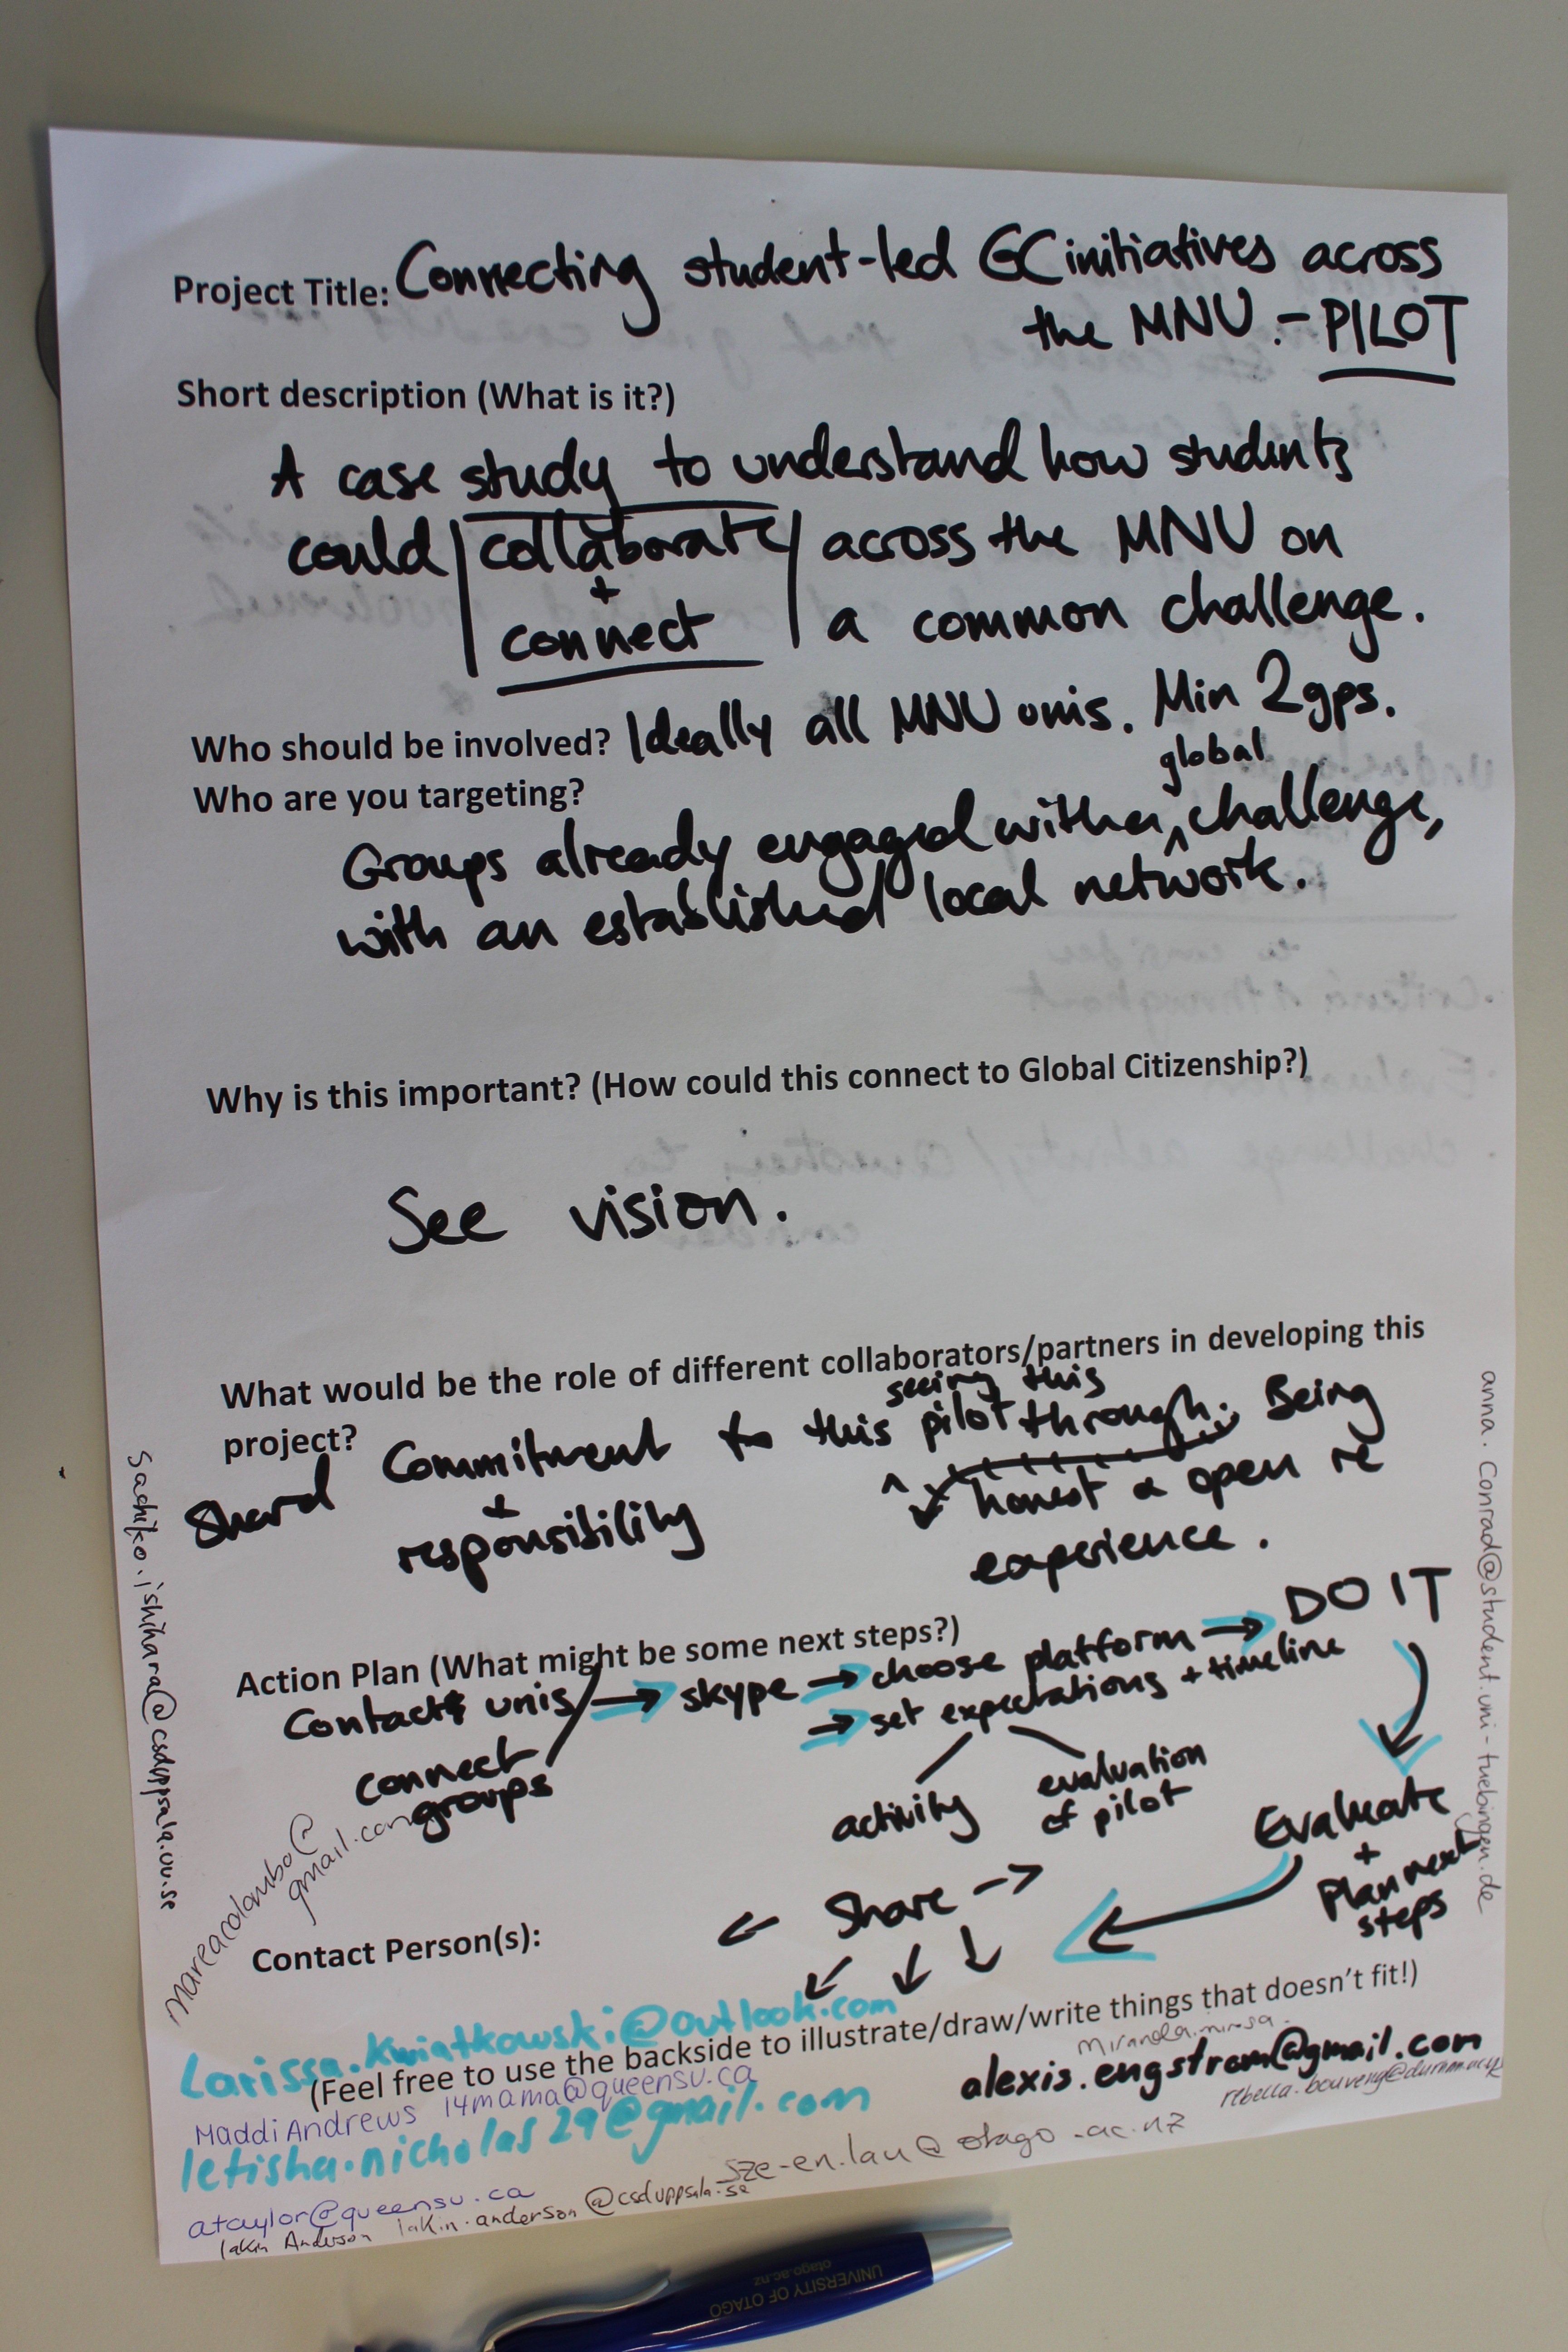 Project Title: Connecting student-led GC initiatives across
the MNU. - PILOT
Short description (What is it?)
A case study to understand how students
could collaborate across the MNU on
+
connect a common challenge.
Who should be involved? Ideally all MNU unis. Min 2 gps.
Who are you targeting?
global
Groups already engaged with a challenge,
with an established local network.
Why is this important? (How could this connect to Global Citizenship?)
See vision.
What would be the role of different collaborators/partners in developing this
project?
seeing this
Shared Commitment to this pilot through. Being
+
responsibility
honest & open re
experience.
Action Plan (What might be some next steps?)
Contact unis → skype → choose platform → DO IT
→ set expectations + timeline
connect
groups
activity
evaluation
of pilot
Evaluate
+
Plan next
steps
← Share →
Contact Person(s):
sachiko.ishihara@csduppsala.uu.se
anna.conrad@student.uni-tuebingen.de
mareacolombo@
gmail.com
Larissa.kwiatkowski@outlook.com
(Feel free to use the backside to illustrate/draw/write things that doesn't fit!)
alexis.engstrom@gmail.com
Maddi Andrews 14mama@queensu.ca
letisha.nicholas29@gmail.com
sze-en.lau@otago.ac.nz
ataylor@queensu.ca
Lakin Anderson lakin.anderson@csduppsala.se
UNIVERSITY OF OTAGO
otago.ac.nz